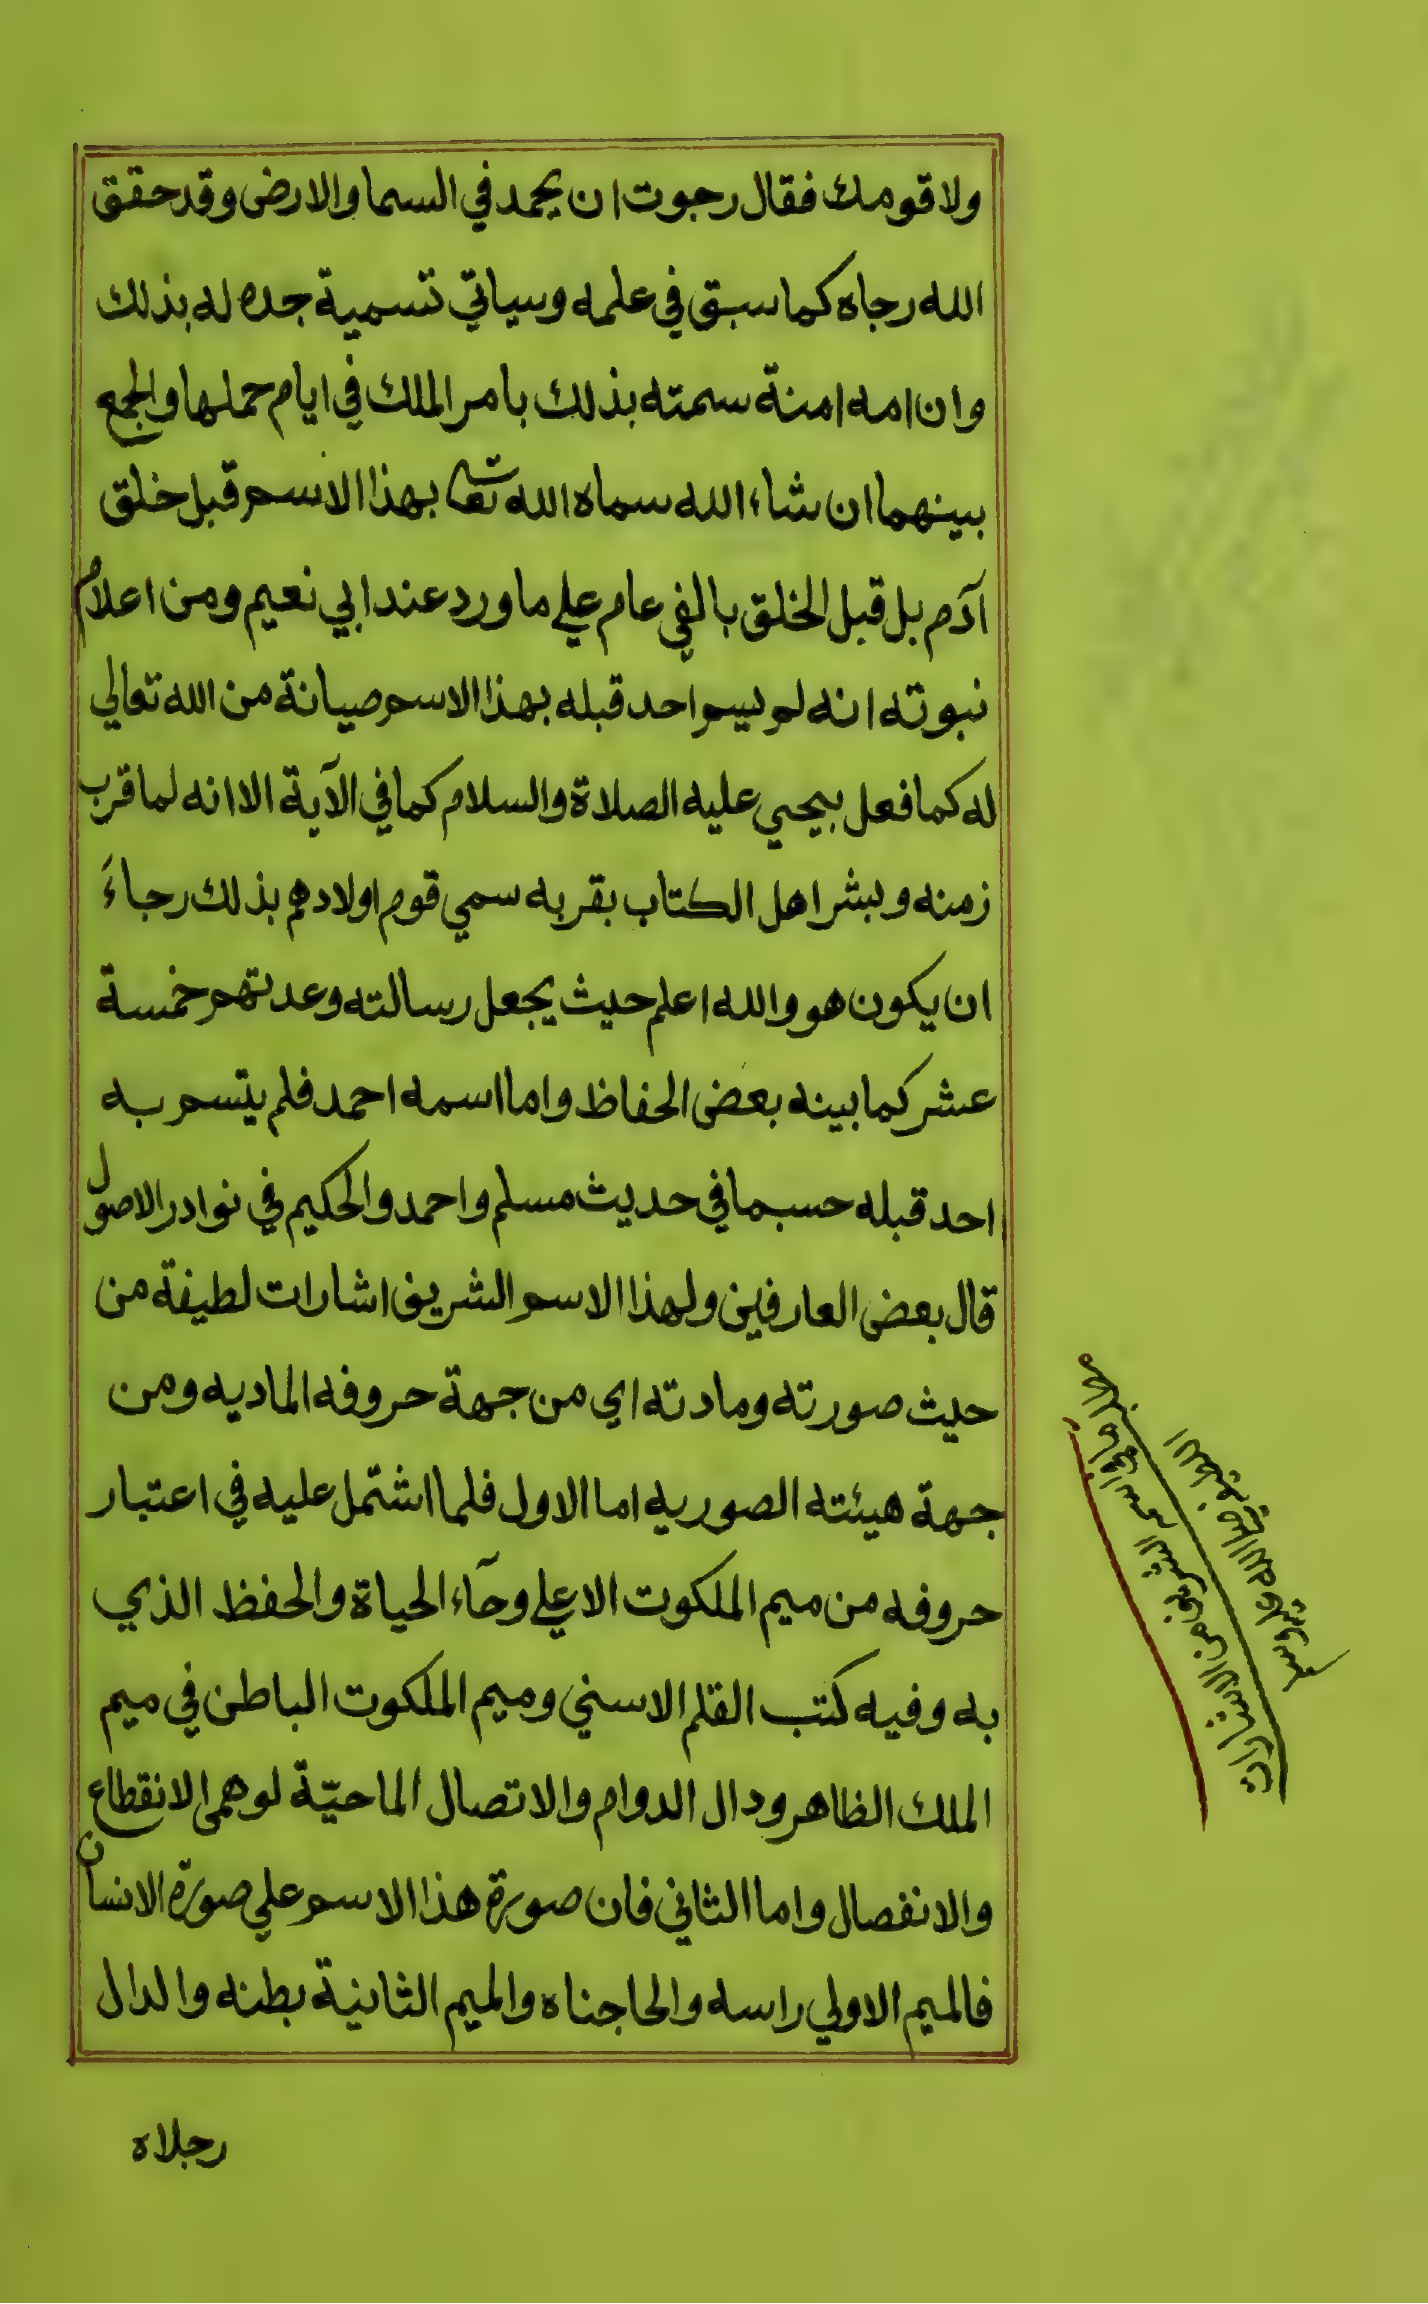 ولا قومك فقال رجوت ان يحمد في السما والارض وقد حقق
الله رجاه كما سبق في علمه وسياتي تسمية جده له بذلك
وان امه امنة سمته بذلك بامر الملك في ايام حملها والجمع
بينهما ان شاء الله سماه الله تعا بهذا الاسم قبل خلق
آدم بل قبل الخلق بالفي عام علي ما ورد عند ابي نعيم ومن اعلام
نبوته انه لم يسم احد قبله بهذا الاسم صيانة من الله تعالي
له كما فعل بيحيي عليه الصلاة والسلام كما في الآية الا انه لما قرب
زمنه وبشر اهل الكتاب بقربه سمي قوم اولادهم بذلك رجاءَ
ان يكون هو والله اعلم حيث يجعل رسالته وعدتهم خمسة
عشر كما بينه بعض الحفاظ واما اسمه احمد فلم يتسم به
احد قبله حسبما في حديث مسلم واحمد والحكيم في نوادر الاصول
قال بعض العارفين ولهذا الاسم الشريف اشارات لطيفة من
حيث صورته ومادته اي من جهة حروفه الماديه ومن
جهة هيئته الصوريه اما الاول فلما اشتمل عليه في اعتبار
حروفه من ميم الملكوت الاعلي وحآء الحياة والحفظ الذي
به وفيه كتب القلم الاسني وميم الملكوت الباطن في ميم
الملك الظاهر ودال الدوام والاتصال الماحيّة لوهمي الانقطاع
والانفصال واما الثاني فان صورة هذا الاسم علي صورة الانسان
فالميم الاولي راسه والحا جناه والميم الثانية بطنه والدال
رجلاه
ما في اسمه الشريف من الاشارات